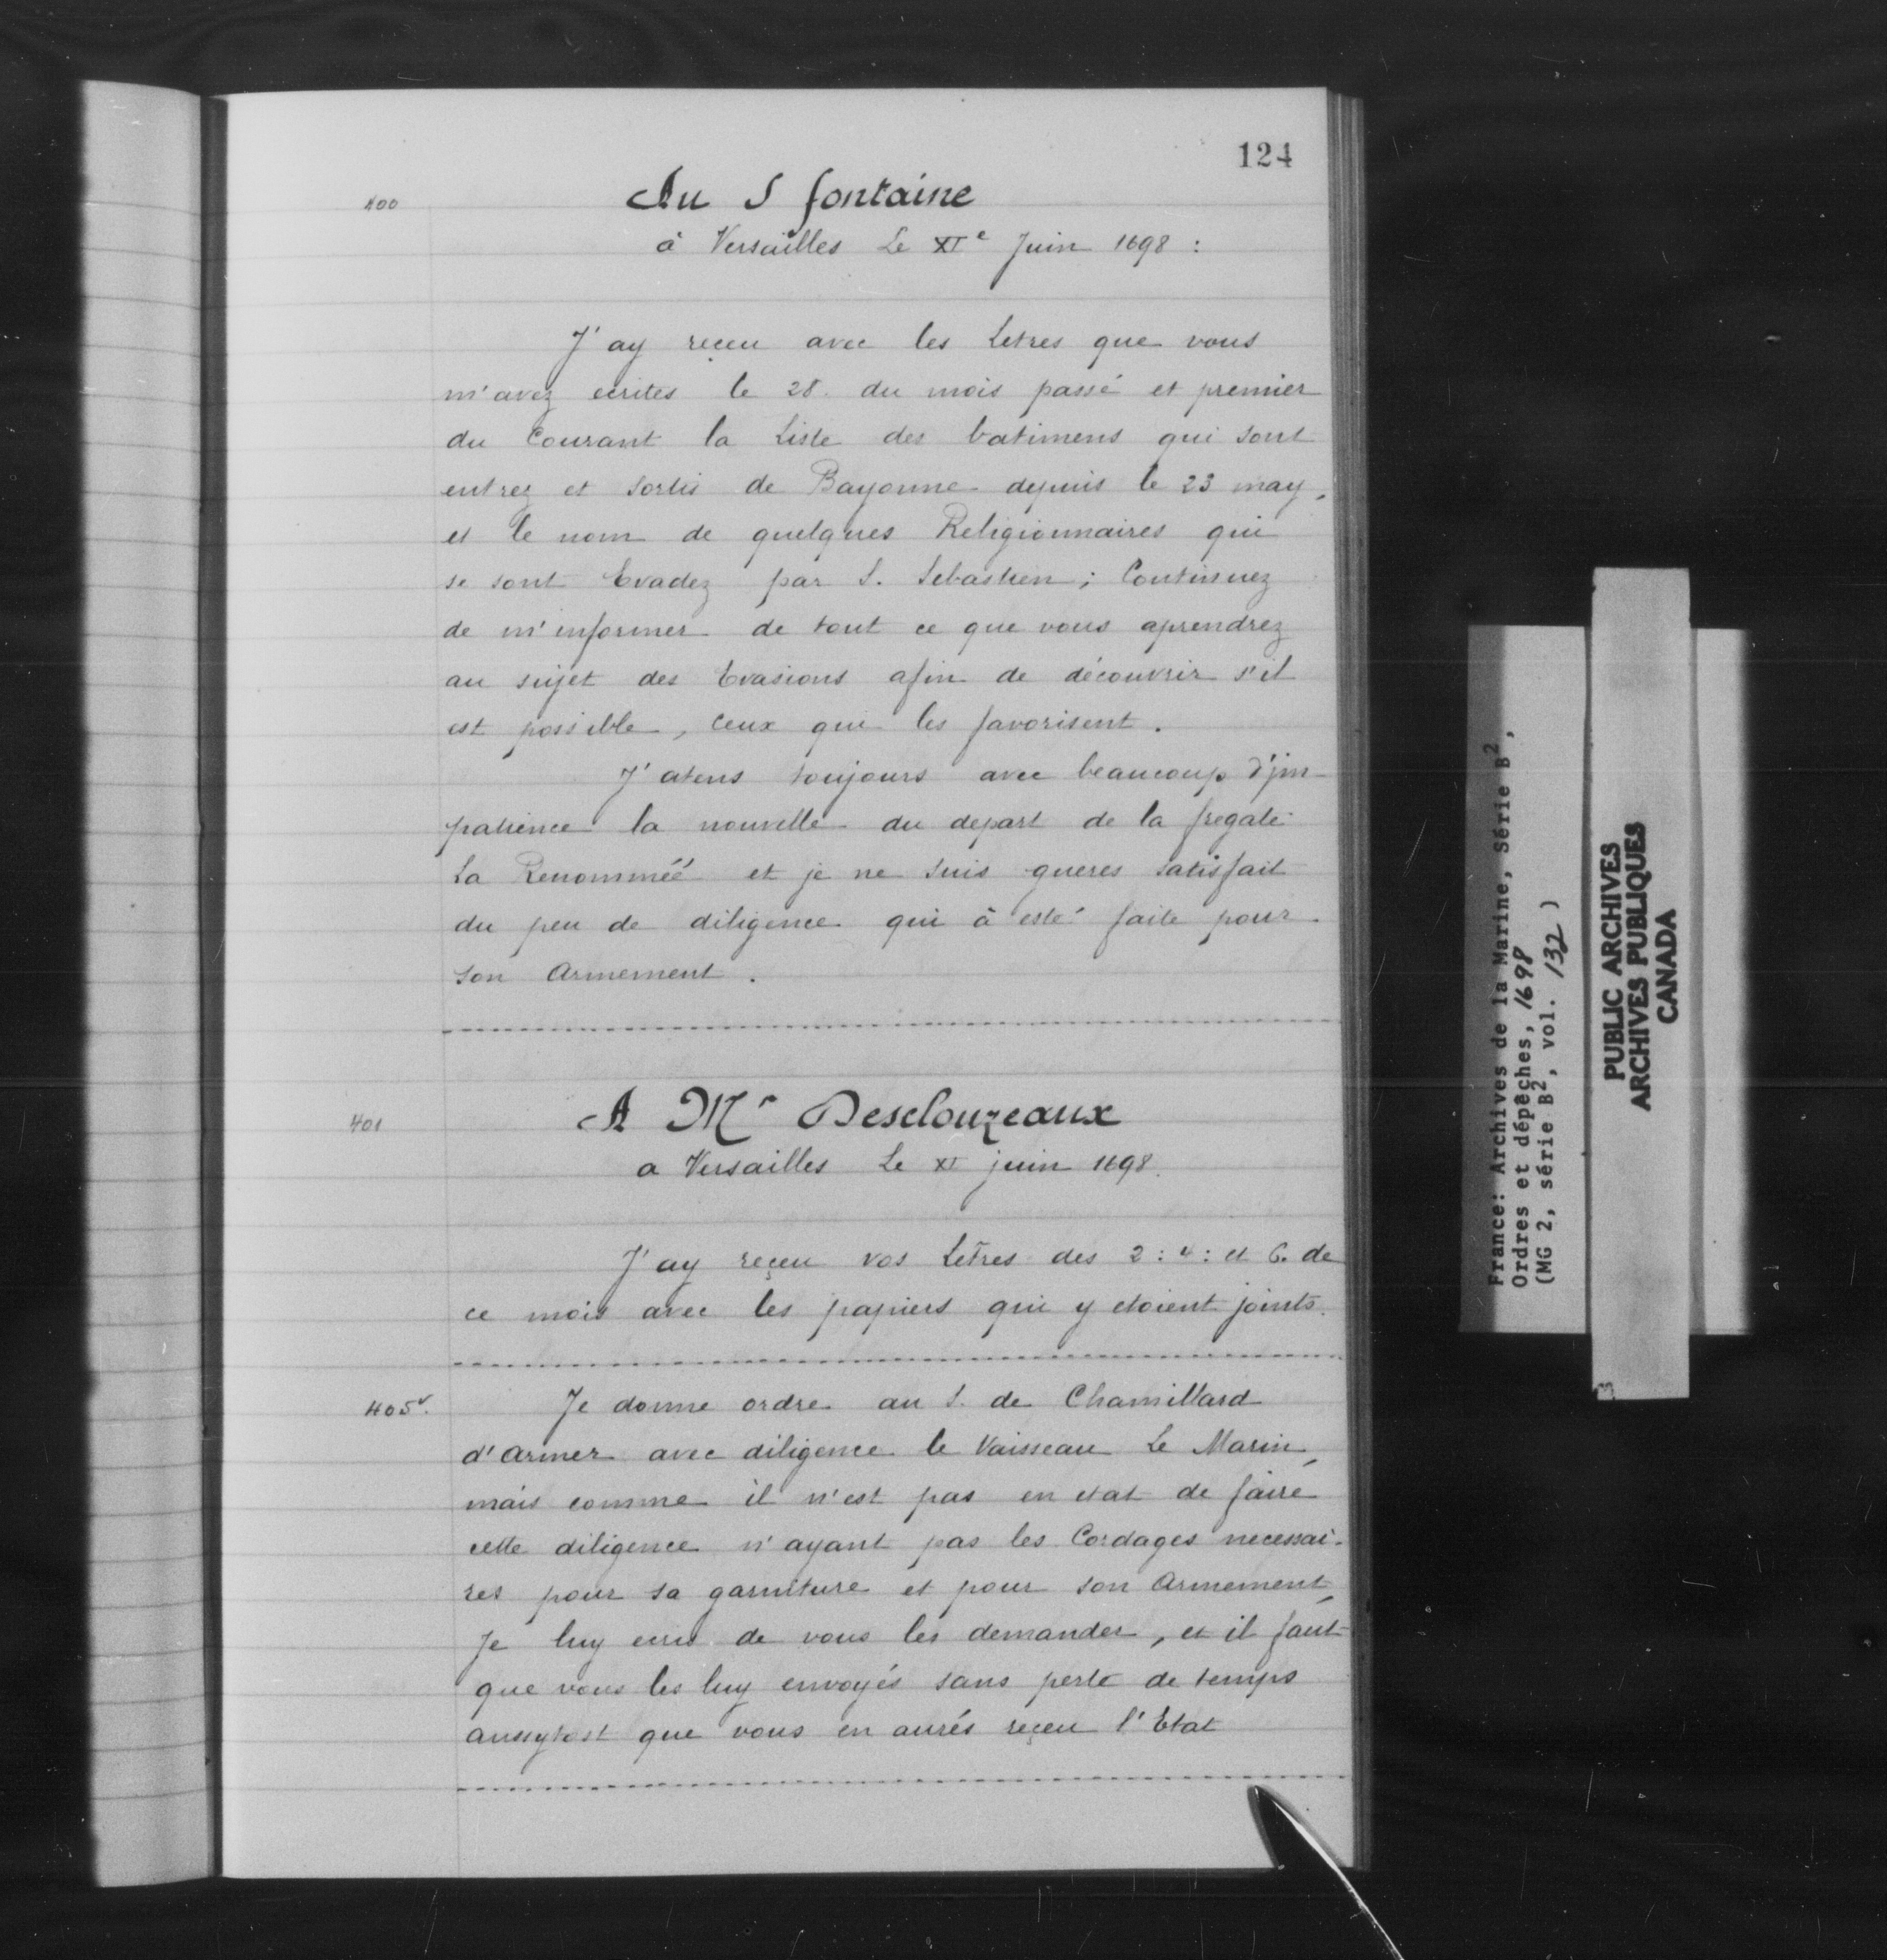 124
400
Au S fontaine
à Versailles Le XIe Juin 1698 :
J'ay receu avec les Letres que vous
m'avez ecrites le 28. du mois passé et premier
du Courant la Liste des batimens qui sont
entrez et sortis de Bayonne depuis le 23 may,
et le nom de quelques Religionnaires qui
se sont Evadez par S. Sebastien ; Continuez
de m'informer de tout ce que vous aprendrez
au sujet des Evasions afin de découvrir s'il
est possible, Ceux qui les favorisent.
J'atens toujours avec beaucoup d'jm-
patience la nouvelle du depart de la fregate
La Renommée et je ne suis gueres satisfait
du peu de diligence qui à esté faite pour
son Armement.
401
A Mr Desclouzeaux
a Versailles Le XI juin 1698.
J'ay reçeu vos Letres des 2 : 4 : et 6. de
ce mois avec les papiers qui y etoient joints.
405v.
Je donne ordre au S. de Chamillard
d'Armer avec diligence le Vaisseau Le Marin,
mais comme il n'est pas en etat de faire
cette diligence n'ayant pas les Cordages necessai-
res pour sa garniture et pour son Armement,
Je luy ecris de vous les demander, et il faut
que vous les luy envoyés sans perte de temps
aussytost que vous en aurés reçeu l'Etat
France: Archives de la Marine, Série B2,
Ordres et dépêches, 1698
(MG 2, série B2, vol. 132)
PUBLIC ARCHIVES
ARCHIVES PUBLIQUES
CANADA
3